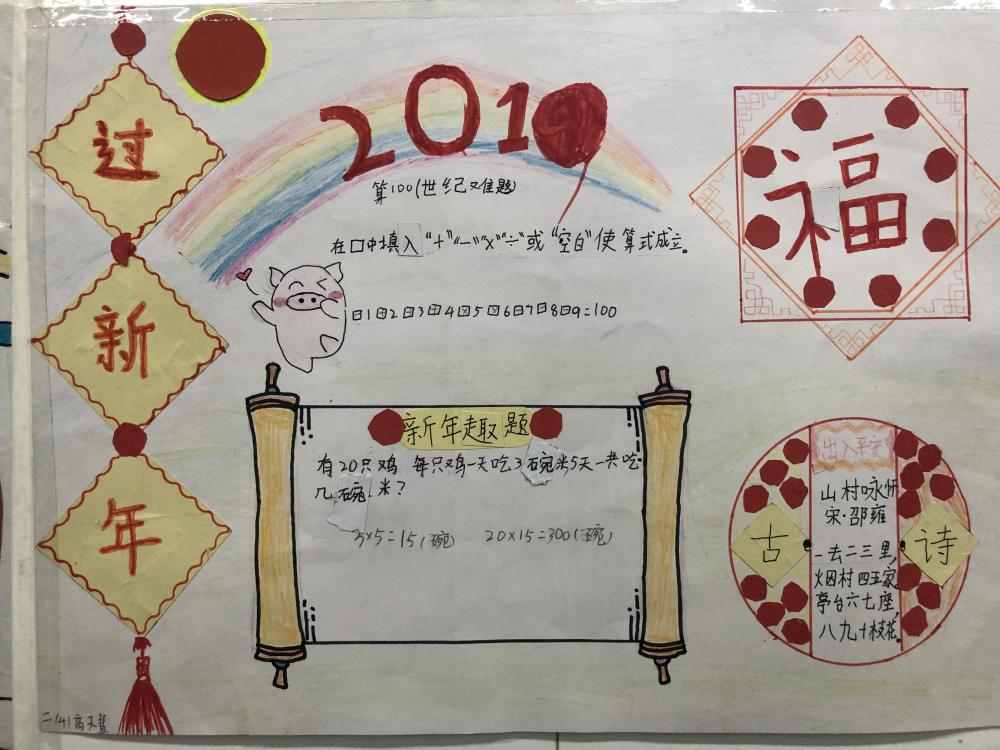 过
新
年
2019
算100(世纪难题)
在口中填入“+”“—”“×”“÷”或“空白”使算式成立。
新年趣题
有20只鸡 每只鸡一天吃3碗米5天一共吃
几碗米?
3×5=15(碗) 20×15=300(碗)
福
出入平安
古诗
山村咏怀
宋·邵雍
一去二三里,
烟村四五家,
亭台六七座,
八九十枝花。
二(4)高天